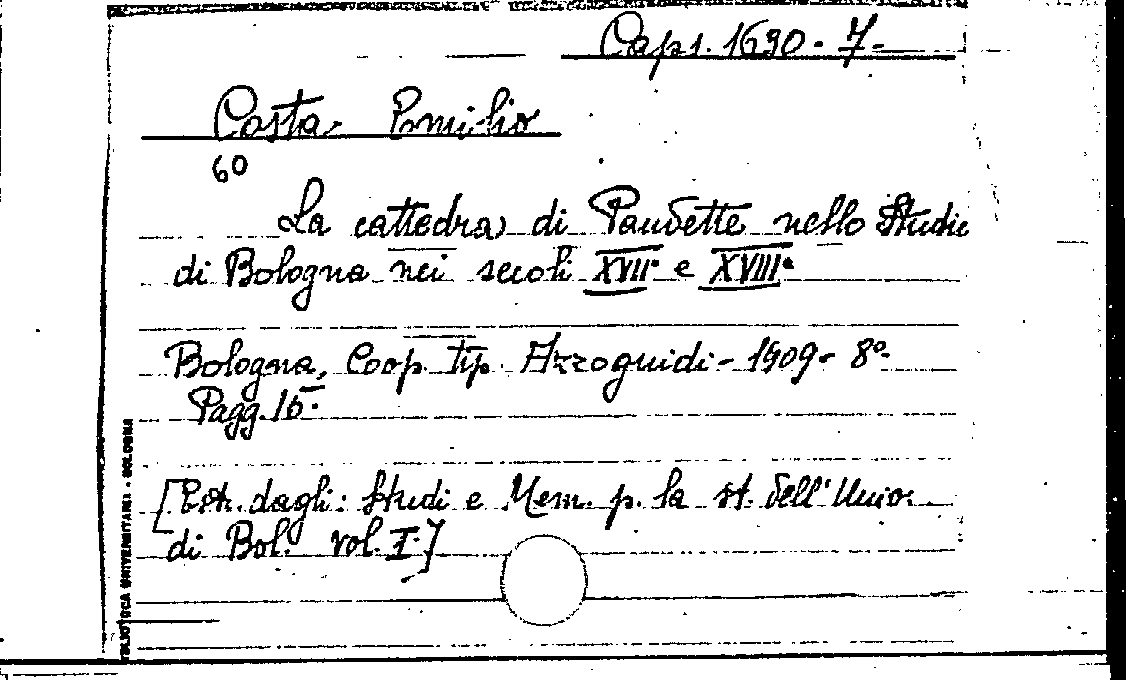 Caps. 1690 - 7 -
Costa - Emilio
60
La cattedra di Pandette nello Studio
di Bologna nei secoli XVII° e XVIII°
Bologna, Coop. tip. Azzoguidi - 1909 - 8°
Pagg. 16.
[Estr. dagli: Studi e Mem. p. la st. dell' Univ.
di Bol. vol. I.]
BIBLIOTECA UNIVERSITARIA - BOLOGNA